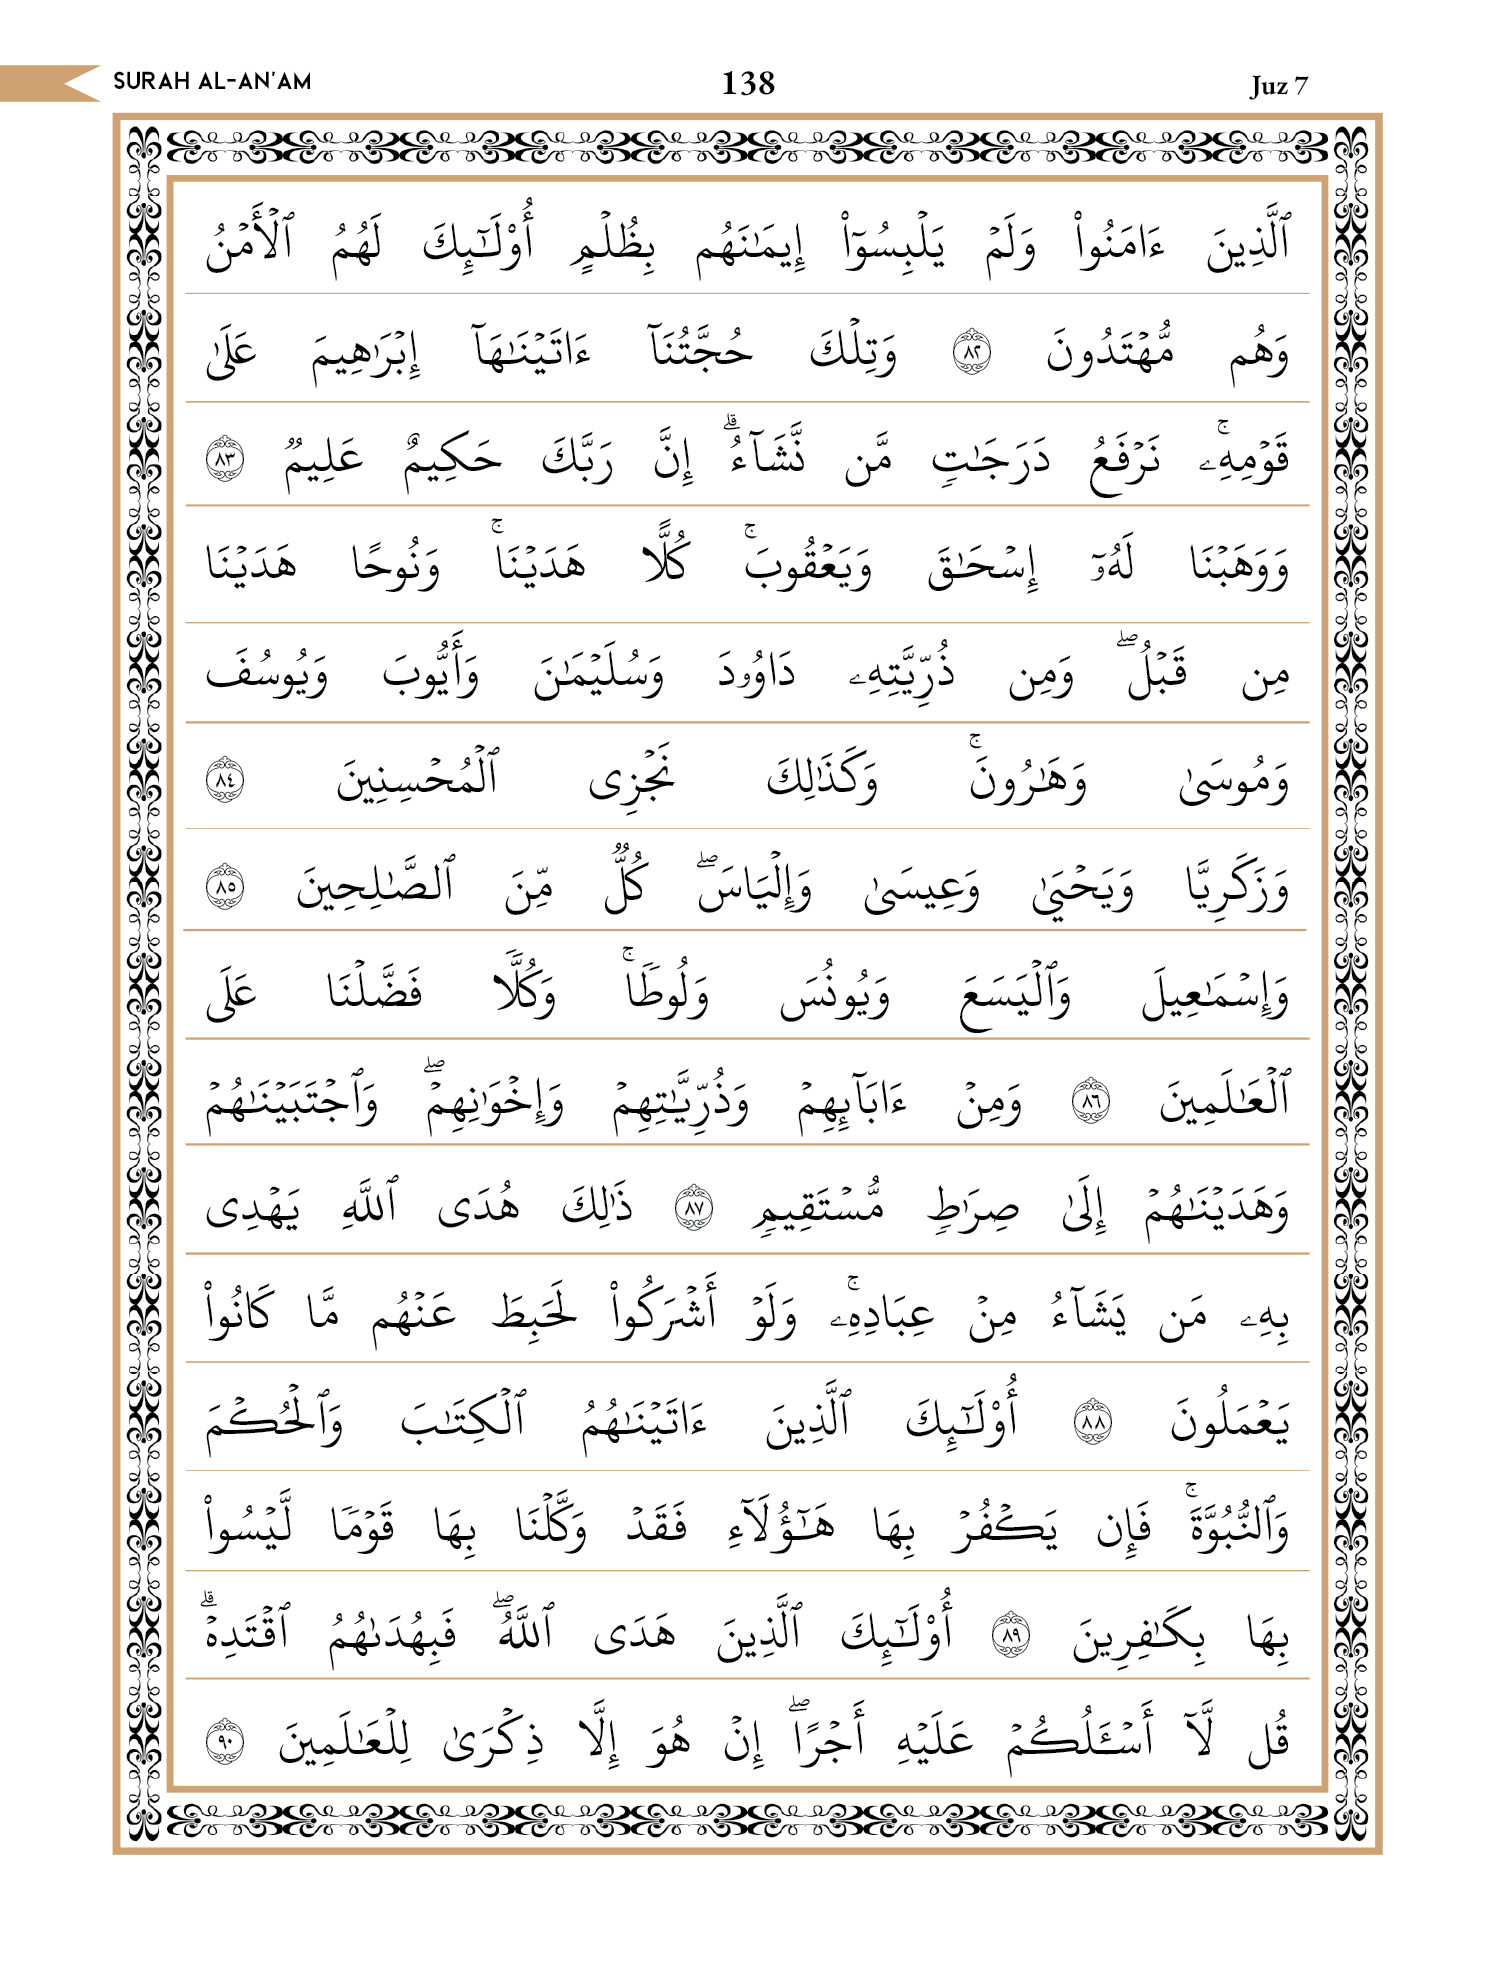 SURAH AL-AN'AM 138 Juz 7
ٱلَّذِينَ ءَامَنُوا۟ وَلَمْ يَلْبِسُوٓا۟ إِيمَـٰنَهُم بِظُلْمٍ أُو۟لَـٰٓئِكَ لَهُمُ ٱلْأَمْنُ
وَهُم مُّهْتَدُونَ ٨٢ وَتِلْكَ حُجَّتُنَآ ءَاتَيْنَـٰهَآ إِبْرَٰهِيمَ عَلَىٰ
قَوْمِهِۦ ۚ نَرْفَعُ دَرَجَـٰتٍ مَّن نَّشَآءُ ۗ إِنَّ رَبَّكَ حَكِيمٌ عَلِيمٌ ٨٣
وَوَهَبْنَا لَهُۥٓ إِسْحَـٰقَ وَيَعْقُوبَ ۚ كُلًّا هَدَيْنَا ۚ وَنُوحًا هَدَيْنَا
مِن قَبْلُ ۖ وَمِن ذُرِّيَّتِهِۦ دَاوُۥدَ وَسُلَيْمَـٰنَ وَأَيُّوبَ وَيُوسُفَ
وَمُوسَىٰ وَهَـٰرُونَ ۚ وَكَذَٰلِكَ نَجْزِى ٱلْمُحْسِنِينَ ٨٤
وَزَكَرِيَّا وَيَحْيَىٰ وَعِيسَىٰ وَإِلْيَاسَ ۖ كُلٌّ مِّنَ ٱلصَّـٰلِحِينَ ٨٥
وَإِسْمَـٰعِيلَ وَٱلْيَسَعَ وَيُونُسَ وَلُوطًا ۚ وَكُلًّا فَضَّلْنَا عَلَى
ٱلْعَـٰلَمِينَ ٨٦ وَمِنْ ءَابَآئِهِمْ وَذُرِّيَّـٰتِهِمْ وَإِخْوَٰنِهِمْ ۖ وَٱجْتَبَيْنَـٰهُمْ
وَهَدَيْنَـٰهُمْ إِلَىٰ صِرَٰطٍ مُّسْتَقِيمٍ ٨٧ ذَٰلِكَ هُدَى ٱللَّهِ يَهْدِى
بِهِۦ مَن يَشَآءُ مِنْ عِبَادِهِۦ ۚ وَلَوْ أَشْرَكُوا۟ لَحَبِطَ عَنْهُم مَّا كَانُوا۟
يَعْمَلُونَ ٨٨ أُو۟لَـٰٓئِكَ ٱلَّذِينَ ءَاتَيْنَـٰهُمُ ٱلْكِتَـٰبَ وَٱلْحُكْمَ
وَٱلنُّبُوَّةَ ۚ فَإِن يَكْفُرْ بِهَا هَـٰٓؤُلَآءِ فَقَدْ وَكَّلْنَا بِهَا قَوْمًا لَّيْسُوا۟
بِهَا بِكَـٰفِرِينَ ٨٩ أُو۟لَـٰٓئِكَ ٱلَّذِينَ هَدَى ٱللَّهُ ۖ فَبِهُدَىٰهُمُ ٱقْتَدِهْ ۗ
قُل لَّآ أَسْـَٔلُكُمْ عَلَيْهِ أَجْرًا ۖ إِنْ هُوَ إِلَّا ذِكْرَىٰ لِلْعَـٰلَمِينَ ٩٠